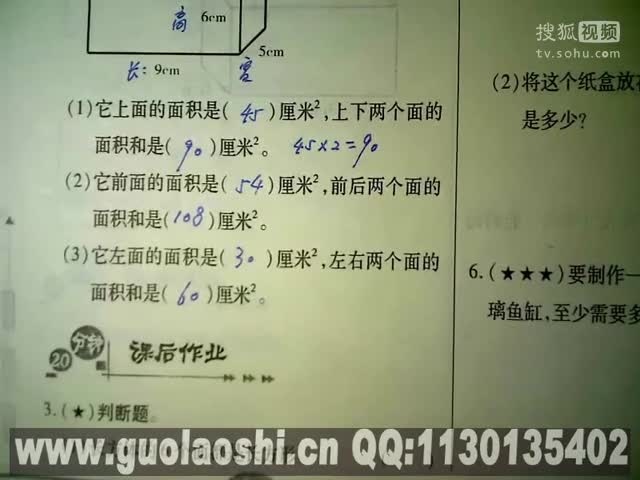 搜狐视频
tv.sohu.com
高 6cm
5cm
长: 9cm 宽
(1)它上面的面积是( 45 )厘米²,上下两个面的
面积和是( 90 )厘米²。 45×2=90
(2)它前面的面积是( 54 )厘米²,前后两个面的
面积和是( 108 )厘米²。
(3)它左面的面积是( 30 )厘米²,左右两个面的
面积和是( 60 )厘米²。
20分钟 课后作业
3.(★)判断题。
(2)将这个纸盒放在
是多少?
6.(★★★)要制作一
璃鱼缸,至少需要多
www.guolaoshi.cn QQ:1130135402